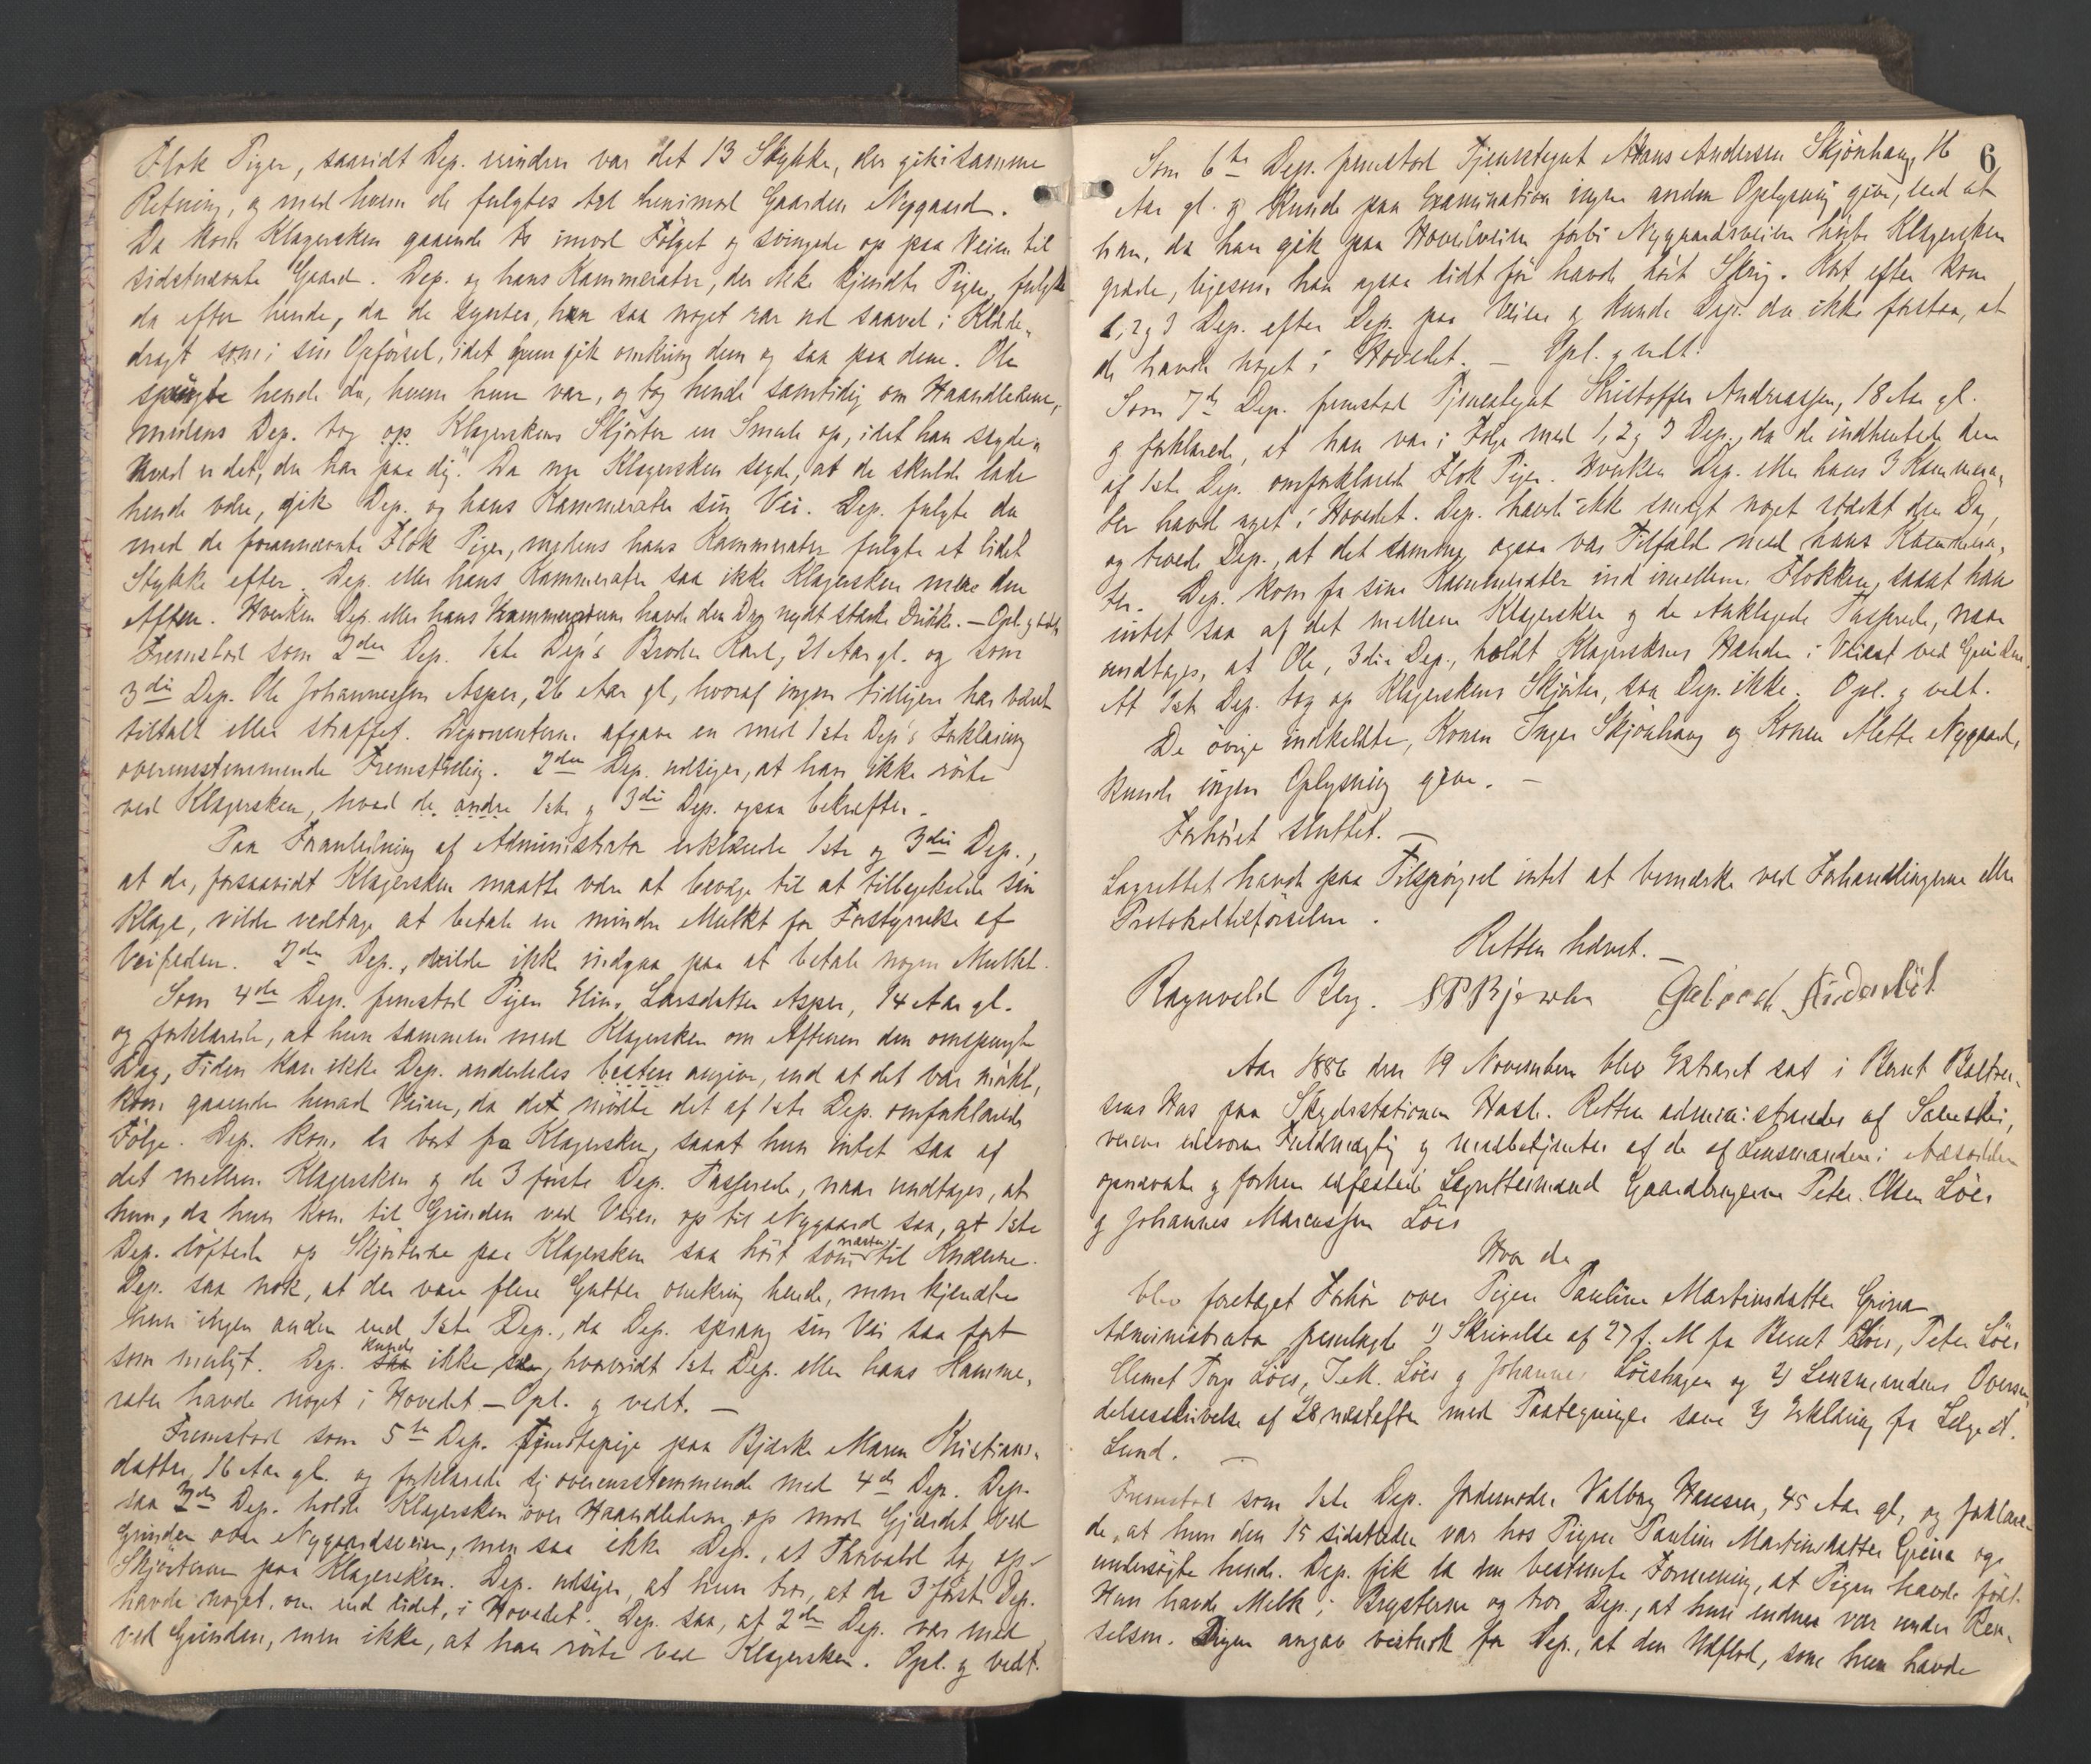 Flok Piger, saavidt Dep. erindrer var det 13 Stykker, der gik i samme
Retning, og med hvem de fulgtes til henimod Gaarden Nygaard.
Da kom Klagersken gaaende imod Følget og svingede op paa Veien til
sidstnævnte Gaard. Dep. og hans Kammerater, der ikke kjendte Pigen, fulgte
da efter hende, da de syntes, hun saa noget rar ud saavel i Klæde-
dragt som i sin Opførsel, idet hun gik omkring dem og saa paa dem. Ole
spurgte hende da, hvem hun var, og tog hende samtidig om Haandledene,
medens Dep. tog op Klagerskens Skjørter en Smule op, idet han sagde „
hvad er det, du har paa dig". Da nu Klagersken sagde, at de skulde lade
hende være, gik Dep. og hans Kammerater sin Vei. Dep. fulgte da
med de forannævnte Flok Piger, medens hans Kammerater fulgte et lidet
Stykke efter. Dep. eller hans Kammerater saa ikke Klagersken mere den
Aften. Hverken Dep. eller hans Kammerater havde den Dag nydt stærke Drikke. — Opl. og vedt.
Fremstod som 2den Dep. 1ste Dep's Broder Karl, 21 Aar gl. og som
3die Dep. Ole Johannessen Asper, 26 Aar gl, hvoraf ingen tidligere har været
tiltalt eller straffet. Deponenterne afgave en med 1ste Dep's Forklaring
overensstemmende Fremstilling. 2den Dep. udsiger, at han ikke rørte
ved Klagersken, hvad de andre 1ste og 3die Dep. ogsaa bekræfter.
Paa Foranledning af Administrator erklærede 1ste og 3die Dep.,
at de, forsaavidt Klagersken maatte være at bevæge til at tilbagekalde sin
Klage, vilde vedtage at betale en mindre Mulkt for Forstyrrelse af
Veifreden. 2den Dep., vilde ikke indgaa paa at betale nogen Mulkt.
Som 4de Dep. fremstod Pigen Eline Larsdatter Asper, 14 Aar gl.
og forklarede, at hun sammen med Klagersken om Aftenen den omspurgte
Dag, Tiden kan ikke Dep. anderledes besten angive, end at det var mørkt,
kom gaaende henad Veien, da det mødte det af 1ste Dep. omforklarede
Følge. Dep. kom da bort fra Klagersken, saaat hun intet saa af
det mellem Klagersken og de 3 første Dep. Passerede, naar undtages, at
hun, da hun kom til Grinden ved Veien op til Nygaard saa, at 1ste
Dep. løftede op Skjørterne paa Klagersken saa høit som næsten til Knæerne.
Dep. saa nok, at der vare flere Gutter omkring hende, men kjendte
hun ingen anden end 1ste Dep., da Dep. sprang sin Vei saa fort
som muligt. Dep. kunde ikke se, hvorvidt 1ste Dep. eller hans Kamme-
rater havde noget i Hovedet. — Opl. og vedt. —
Fremstod som 5te Dep. Tjenestepige paa Bjerke Maren Kristians-
datter, 16 Aar gl. og forklarede sig overensstemmende med 4de Dep. Dep.
saa 3die Dep. holde Klagersken over Haandledene op mod Gjærdet ved
Grinden over Nygaardsveien, men saa ikke Dep., at Thorvald tog op
Skjørterne paa Klagersken. Dep. udsiger, at hun tror, at de 3 første Dep.
havde noget, om end lidet, i Hovedet. Dep. saa, at 2den Dep. var med
ved Grinden, men ikke, at han rørte ved Klagersken. Opl. og vedt.
6
Som 6te Dep. fremstod Tjenestegut Hans Andersen Skjønhaug 16
Aar gl. og kunde paa Examination ingen anden Oplysning give, end at
han, da han gik paa Hovedveien forbi Nygaardsveien hørte Klagersken
græde, ligesom han ogsaa lidt før havde hørt Skrig. Kort efter kom
1, 2 og 3 Dep. efter Dep. paa Veien og kunde Dep. da ikke forstaa, at
de havde noget i Hovedet. — Opl. og vedt.
Som 7de Dep. fremstod Tjenestegut Kristoffer Andreassen, 18 Aar gl.
og forklarede, at han var i Følge med 1, 2 og 3 Dep., da de indhentede den
af 1ste Dep. omforklarede Flok Piger. Hverken Dep. eller hans 3 Kammera-
ter havde noget i Hovedet. Dep. havde ikke smagt noget stærkt den Dag,
og troede Dep., at det samme ogsaa var Tilfælde med hans Kammera-
ter. Dep. kom fra sine Kammerater ind imellem Flokken, saaat han
intet saa af det mellem Klagersken og de Anklagede Passerede, naar
undtages, at Ole, 3die Dep., holdt Klagerskens Hænder i Veiret ved Grinden.
At 1ste Dep. tog op Klagerskens Skjørter, saa Dep. ikke. Opl. og vedt.
De øvrige indkaldte, Konen Inger Skjønhaug og Konen Mette Nygaard,
kunde ingen Oplysning give. —
Forhøret sluttet. —
Lagrettet havde paa Tilspørgsel intet at bemærke ved Forhandlingerne eller
Protokoltilførselen.
Retten hævet. —
Ragnvald Berg.
Aar 1886 den 19 November blev Extraret sat i Bernt Baltzer-
sens Hus paa Skydsstationen Hasle. Retten administreredes af Sorenskri-
verens edsvorne Fuldmægtig og medbetjentes af de af Lensmanden i Næsodden
opnævnte og forhen edfæstede Lagrettesmænd Gaardbrugerne Peter Olsen Løes
og Johannes Marcussen Løes
Hvor da
blev foretaget Forhør over Pigen Pauline Martinsdatter Grina
Administrator fremlagde 1) Skrivelse af 27 f. M fra Bernt Løes, Peter Løes
Clemet Torp Løes, J. M. Løes og Johannes Løeshagen og 2) Lensmandens Oversen-
delsesskrivelse af 28 næstefter med Paategninger samt 3) Erklæring fra Læge A.
Lund. —
Fremstod som 1ste Dep. Jordemoder Valborg Hansen, 45 Aar gl, og forklare-
de, at hun den 15 sidstleden var hos Pigen Pauline Martinsdatter Grina og
undersøgte hende. Dep. fik da den bestemte Formening, at Pigen havde født.
Hun havde Melk i Brysterne og tror Dep., at hun endnu var under Ren-
selsen. Pigen angav vistnok for Dep., at den Udflod, som hun havde